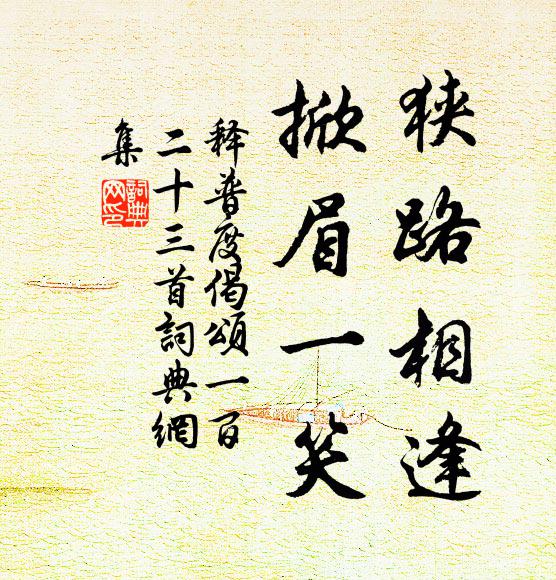 狭路相逢
掀眉一笑
释普度偈頌一百
二十三首詞典網
集
詞典
网印